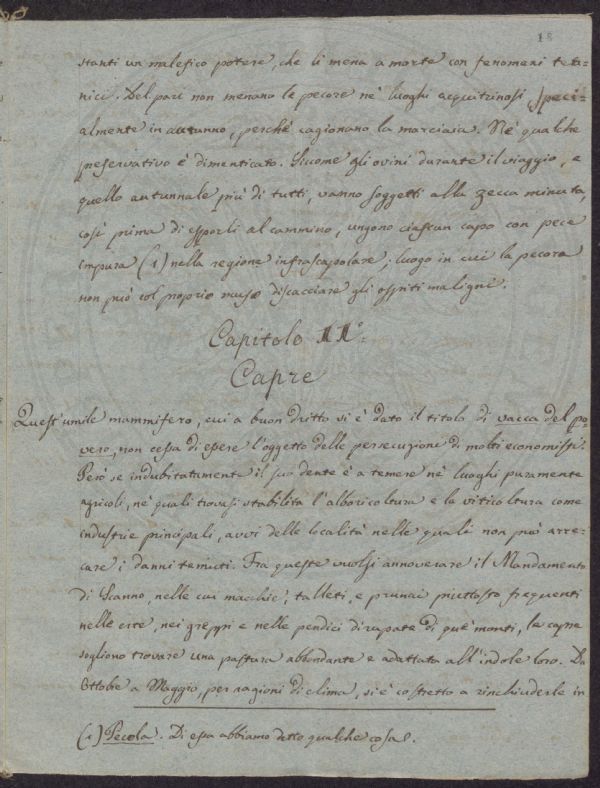 18
stanti un malefico potere, che li mena a morte con fenomeni teta-
nici. Del pari non menano le pecore ne' luoghi acquitrinosi, speci-
almente in autunno, perchè cagionano la marciaia. Nè qualche
preservativo è dimenticato. Siccome gli ovini durante il viaggio, e
quello autunnale più di tutti, vanno soggetti alla zecca minuta,
così prima di esporli al cammino, ungono ciascun capo con pece
impura (1) nella regione infrascapolare; luogo in cui la pecora
non può col proprio muso discacciare gli ospiti maligni.
Capitolo II°.
Capre
Quest'umile mammifero, cui a buon dritto si è dato il titolo di vacca del po-
vero, non cessa di essere l'oggetto delle persecuzioni di molti economisti.
Però se indubitatamente il suo dente è a temere ne' luoghi puramente
agricoli, ne' quali trovasi stabilita l'alboricoltura e la viticoltura come
industrie principali, avvi delle località nelle quali non può arre-
care i danni temuti. Fra queste vuolsi annoverare il Mandamento
di Scanno, nelle cui macchie, talleti, e prunai piuttosto frequenti
nelle erte, nei greppi e nelle pendici dirupate di que' monti, le capre
sogliono trovare una pastura abbondante e adattata all'indole loro. Da
Ottobre a Maggio, per ragioni di clima, si è costretto a rinchiuderle in
(1) Pecola. Di essa abbiamo detto qualche cosa.